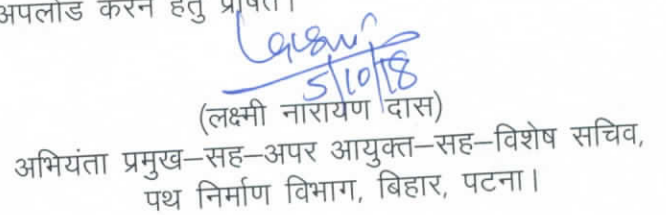 अपलोड करने हेतु प्रेषित।
5/10/18
(लक्ष्मी नारायण दास)
अभियंता प्रमुख–सह–अपर आयुक्त–सह–विशेष सचिव,
पथ निर्माण विभाग, बिहार, पटना।